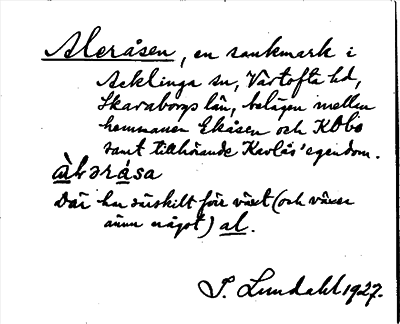 Aleråsen, en sankmark i
Acklinga sn, Vartofta hd,
Skaraborgs län, belägen mellan
hemmanen Ekåsen och
samt tillhörande Kavlås' egendom.
Där har särskilt förr växt (och växer
ännu något) al.
S. Lundahl 1927.